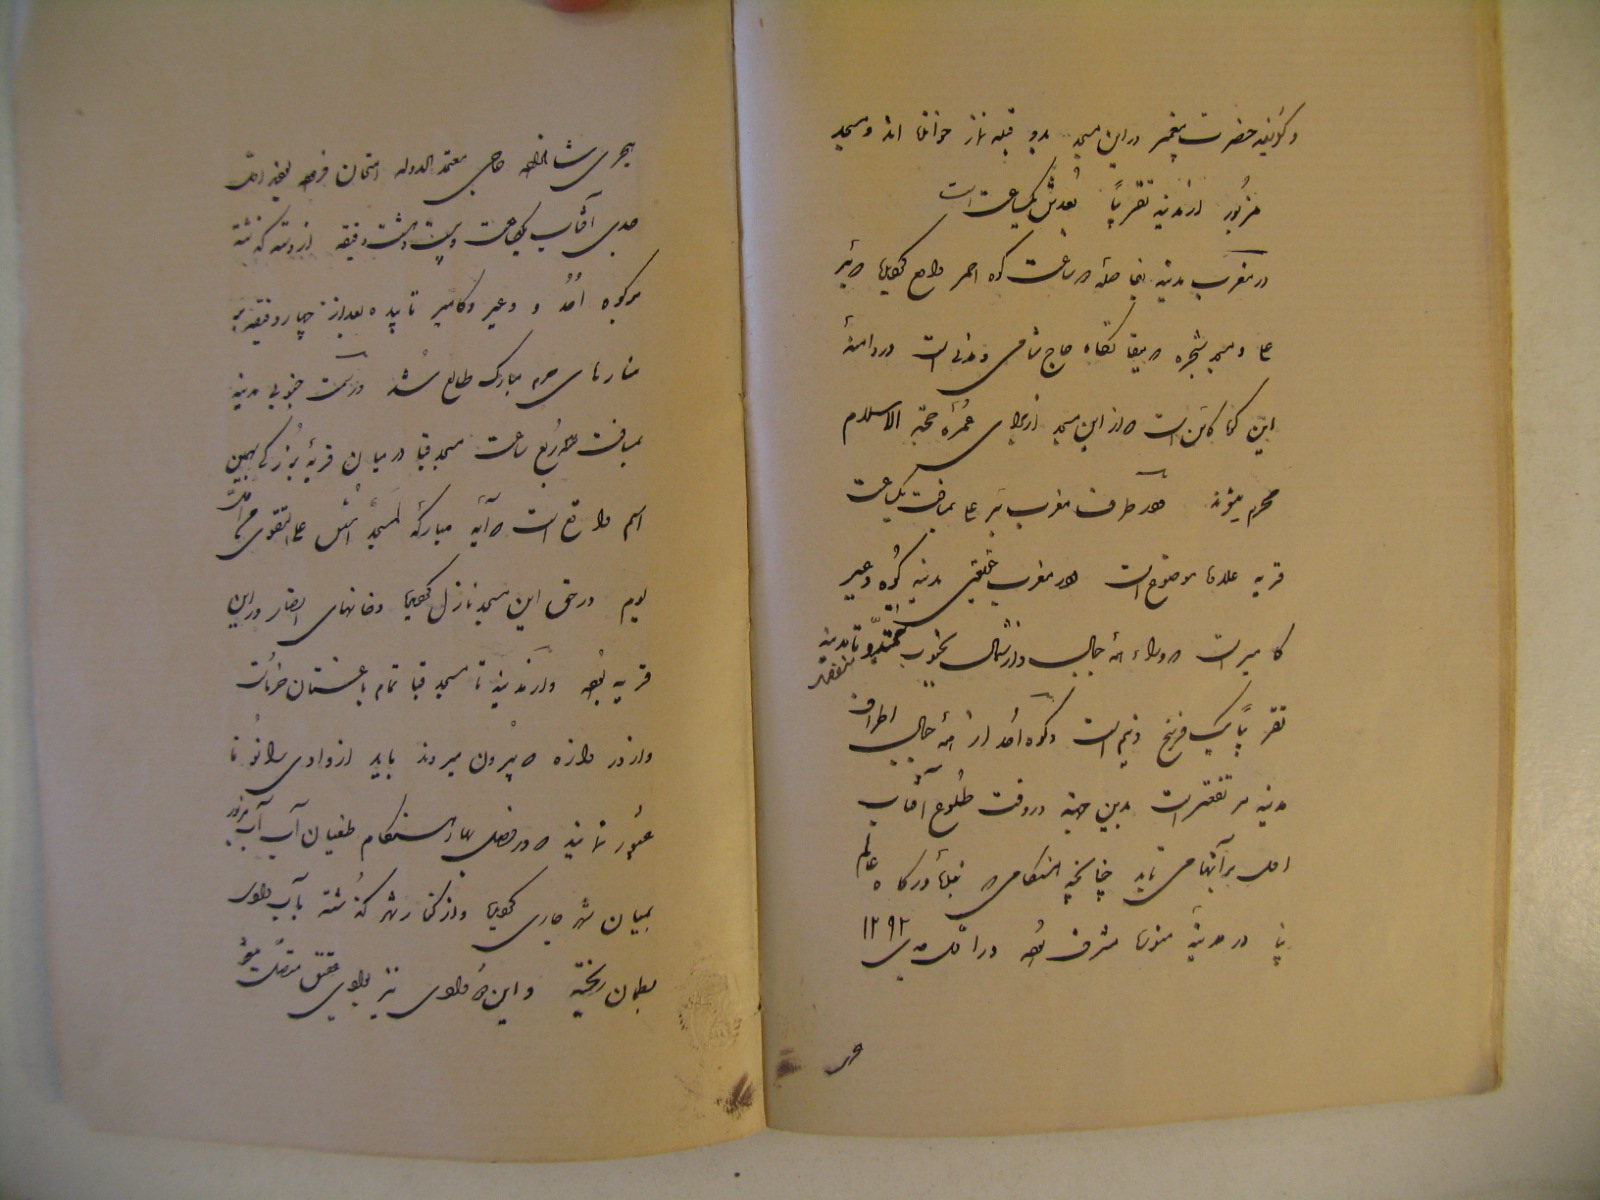 و گویند حضرت پیغمبر در این مسجد بدو قبله نماز خوانده اند و مسجد
مزبور از مدینه تقریباً بعدش یکساعت است
در مغرب مدینه بفاصله ساعت کوه احمر واقع گویند بئر
علی و مسجد شجره میقاتگاه حاج شامی و مدنی است در دامنهٔ
این کوه کائن است از این مسجد از برای عمرهٔ حجة الاسلام
محرم میشوند در طرف مغرب بئر علی بمسافت یکساعت
قریه موضوع است در مغرب حقیقی مدینه کوه وعیر
است وراء همه جبال و از شمال بجنوب ممتد و تا مدینه
تقریباً یک فرسخ و نیم است و کوه احد از همهٔ جبال اطراف
مدینه مرتفعتر است بدین جهة در وقت طلوع آفتاب
اول بر آنها می تابد چنانچه هنگامی
پناه در مدینهٔ منوره مشرف بوده در سال ۱۲۹۲
هجری حاجی معتمد الدوله امتحان فرموده بودند اول
جدی آفتاب یکساعت و بیست و هشت دقیقه از دسته گذشته
بر کوه اُحُد و وعیر تابیده بعد از چهار دقیقه بر
منارهای حرم مبارک طالع شد در سمت جنوبی مدینه
بمسافت ربع ساعت مسجد قبا در میان قریهٔ بزرگی بهمین
اسم واقع است آیه مبارکهٔ لمسجد اسس علی التقوی من اول
یوم در حق این مسجد نازل گویند و خانهای انصار در این
قریه بوده و از مدینه تا مسجد قبا تمام باغستان خرماست
و از دروازه بیرون میروند باید از وادی رانونا
عبور نمایند در فصل بهار و هنگام طغیان آب آب مزبور
بمیان شهر جاری گویند و از کنار شهر گذشته بآب وادی
بطحان ریخته و این وادی نیز بوادی عقیق متصل میشود